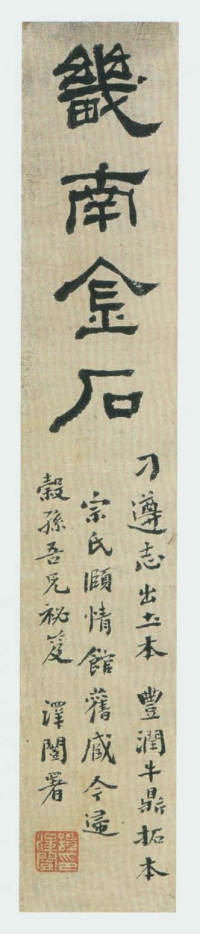 畿南金石
刁遵志出土本 豐潤牛鼎拓本
宗氏頤情館舊藏今歸
穀孫吾兄祕笈 澤闓署